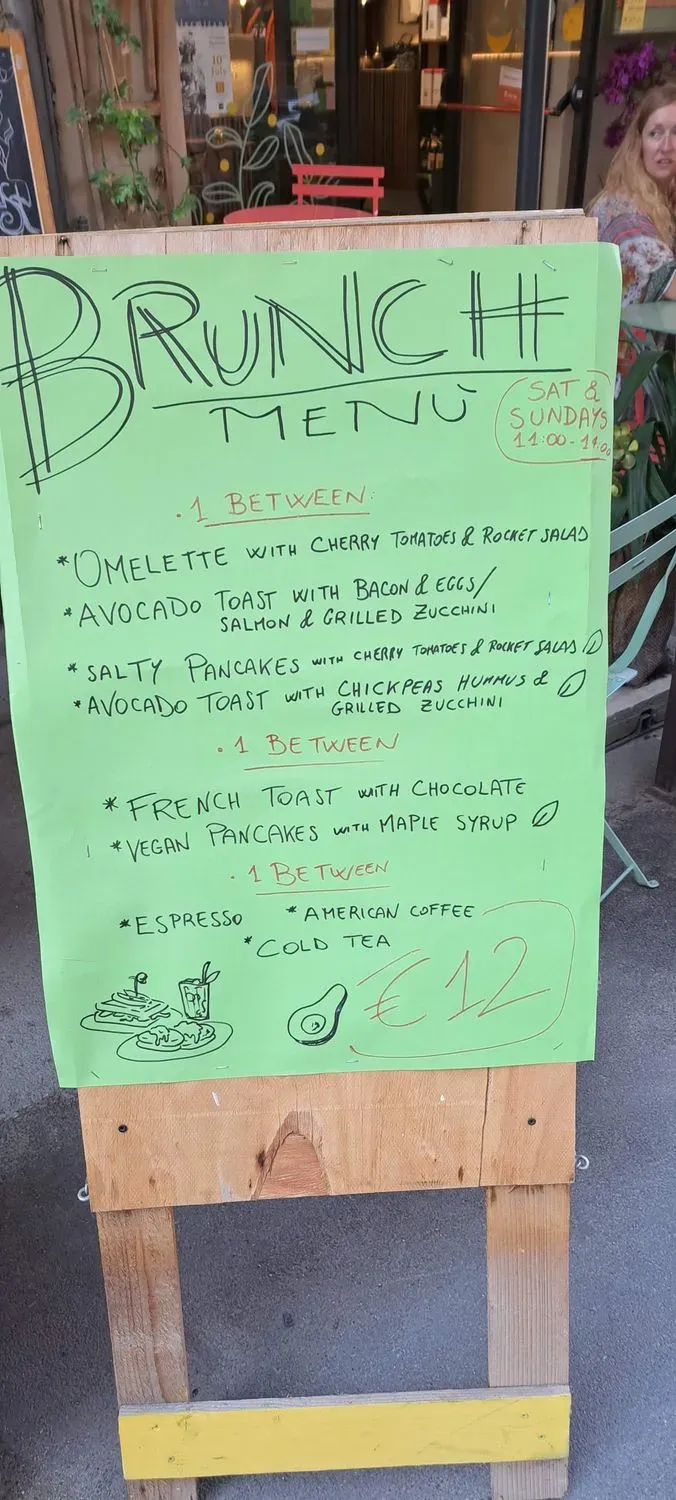 BRUNCH
MENÙ
SAT &
SUNDAYS
11:00 - 14:00
. 1 BETWEEN:
*OMELETTE WITH CHERRY TOMATOES & ROCKET SALAD
*AVOCADO TOAST WITH BACON & EGGS/
SALMON & GRILLED ZUCCHINI
*SALTY PANCAKES WITH CHERRY TOMATOES & ROCKET SALAD
*AVOCADO TOAST WITH CHICKPEAS HUMMUS &
GRILLED ZUCCHINI
. 1 BETWEEN
*FRENCH TOAST WITH CHOCOLATE
*VEGAN PANCAKES WITH MAPLE SYRUP
. 1 BETWEEN
*ESPRESSO *AMERICAN COFFEE
*COLD TEA
€12